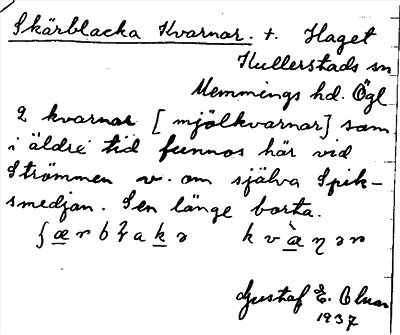 Skärblacka Kvarnar. t. Haget
Kullerstads sn
Memmings hd. Ögl
2 kvarnar [mjölkvarnar] som
i äldre tid funnos här vid
Strömmen v. om själva Spik-
smedjan. Sen länge borta.
ʃærbɽakə kvàɳər
Gustaf E.
1937